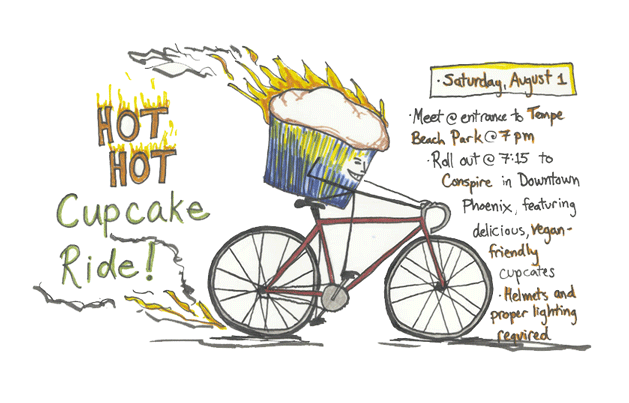 HOT
HOT
Cupcake
Ride!
· Saturday, August 1
· Meet @ entrance to Tempe
Beach Park @ 7 pm
· Roll out @ 7:15 to
Conspire in Downtown
Phoenix, featuring
delicious, vegan-
friendly
cupcates
· Helmets and
proper lighting
required